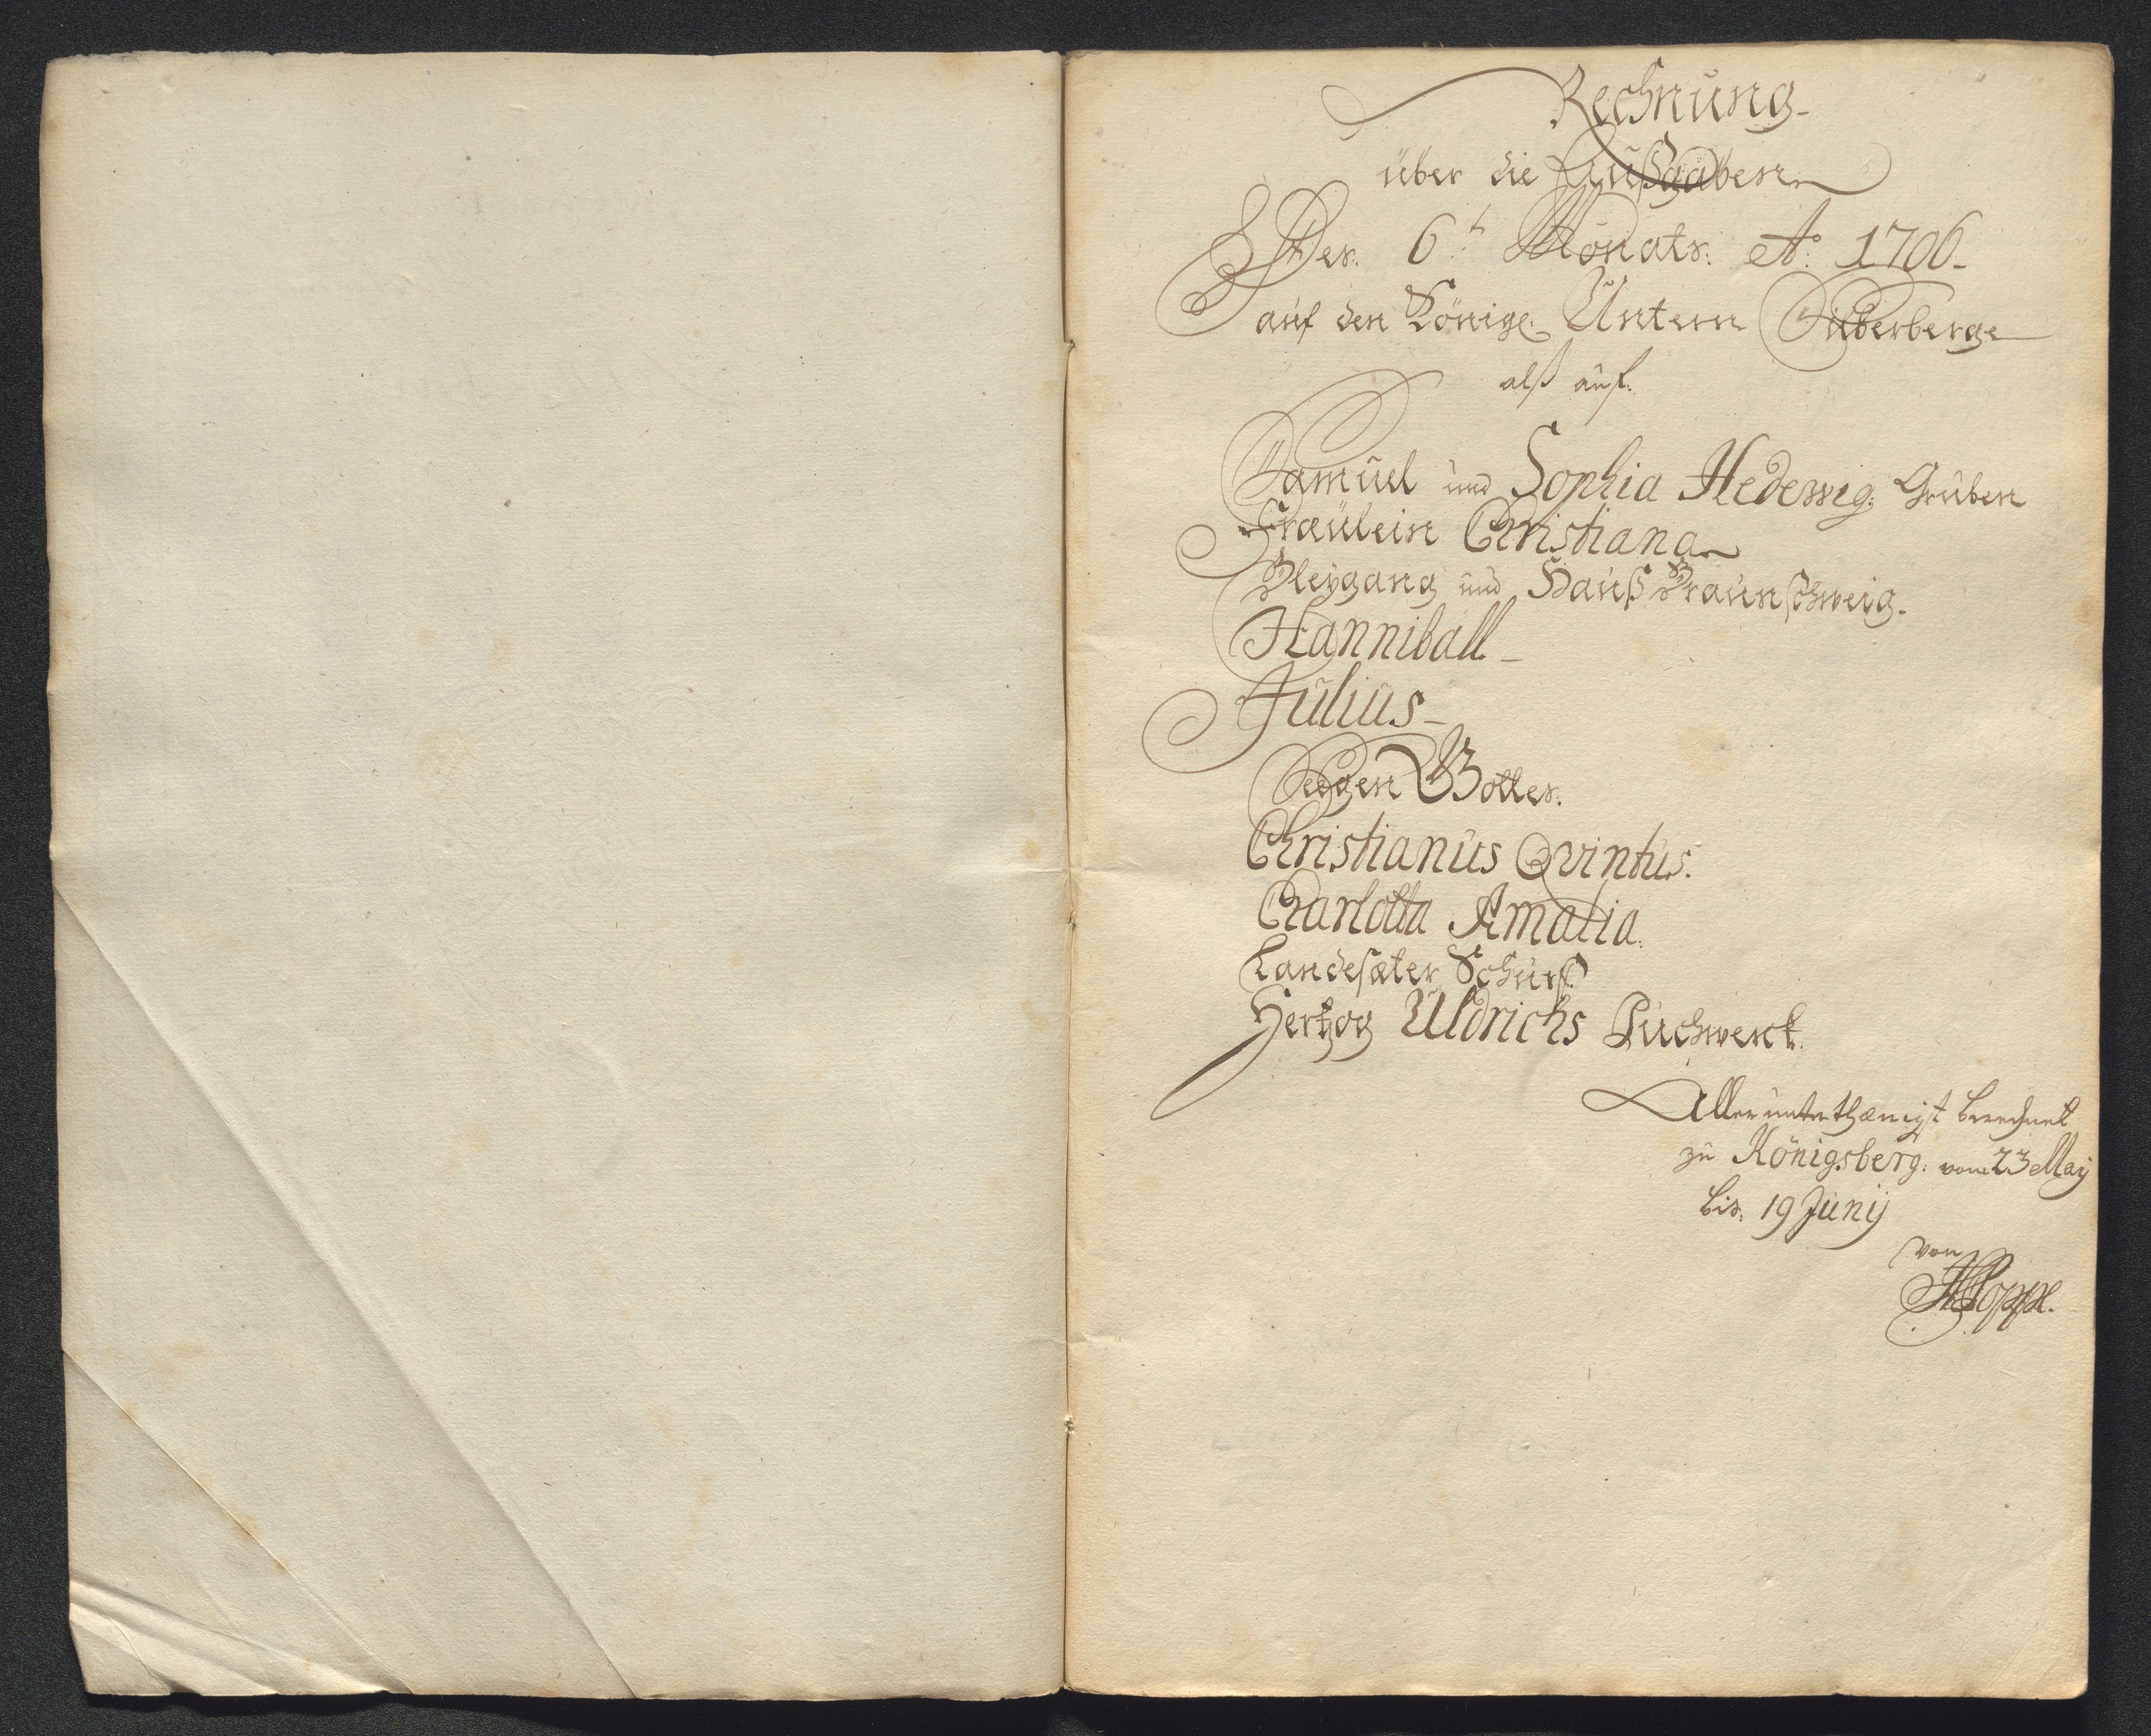 Rechnung
über die Außgaben
Des 6.t Monats: Ao: 1706.
auf den Königl: Untern Silberberge
alß auf:
Samuel und Sophia Hedewig: Gruben
Fraülein Christiana
Bleygang und Hauß Braunschweig.
Hanniball
Julius
Seegen Gottes.
Christianus Qvintus.
Charlotta Amalia.
Landesæter Schurf.
Hertzog Uldrichs Puchwerck.
Allerunterthænigst berechnet
zu Königsberg: vom 23 May
bis: 19 Junij
von